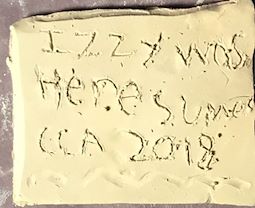 IZZY WAS
Here SUMer
CCA 2018